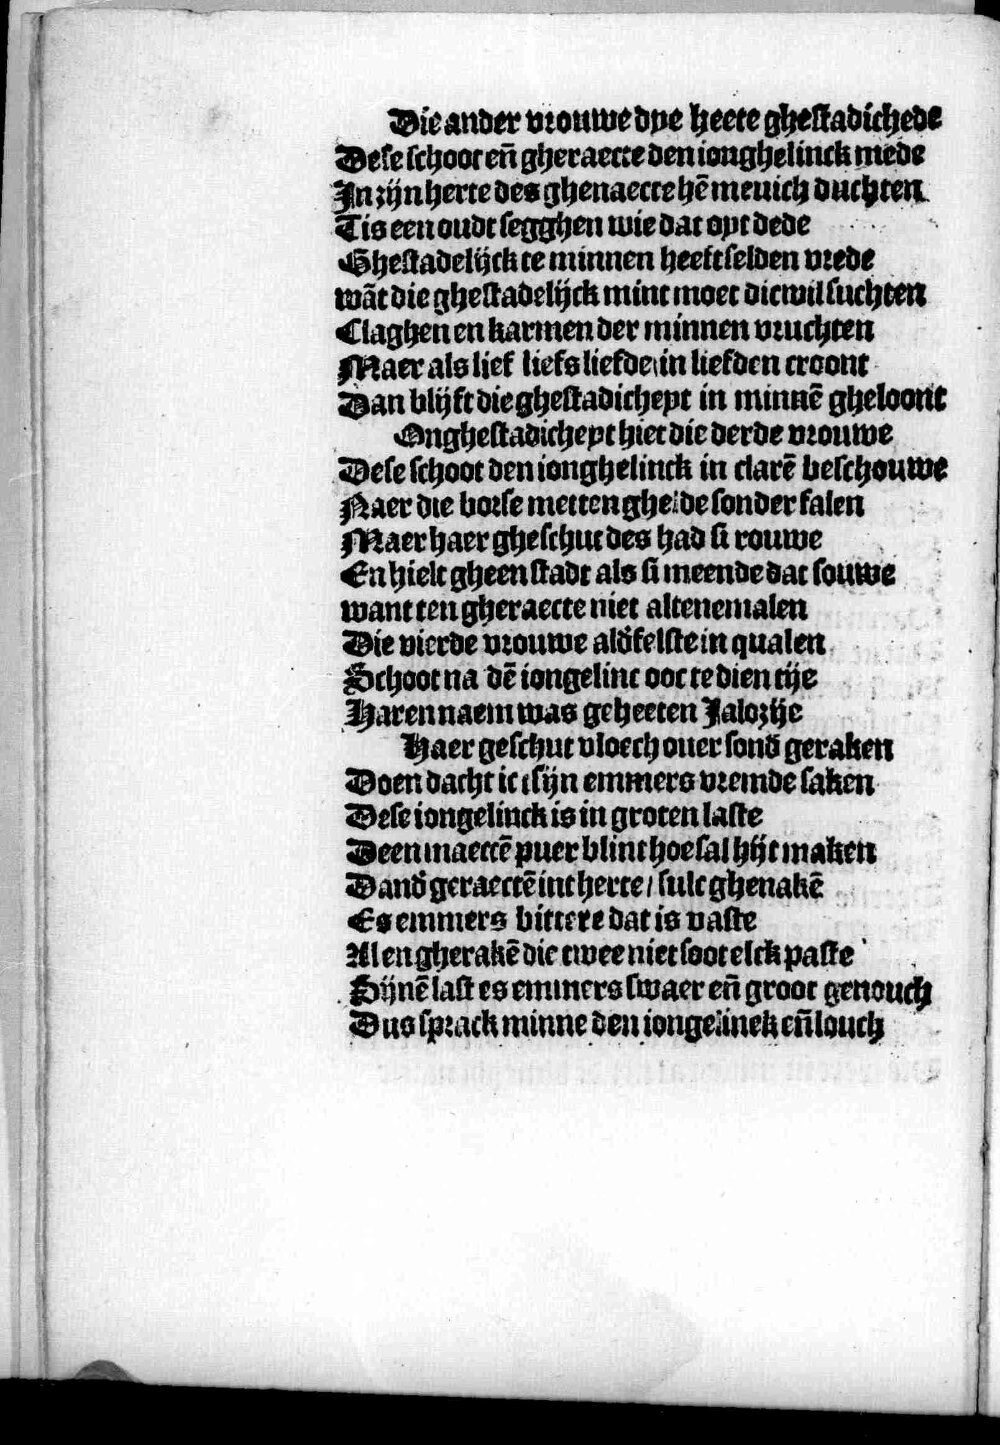 Die ander vrouwe dye heete ghestadichede
Dese schoot eñ gheraecte den ionghelinck mede
In zijn herte des ghenaecte hē meuich duchten
Tis een oudt segghen wie dat oyt dede
Ghestadelijck te minnen heeft selden vrede
wāt die ghestadelijck mint moet dicwil suchten
Claghen en karmen der minnen vruchten
Maer als lief liefs liefde in liefden croont
Dan blijft die ghestadicheyt in minnē gheloont
Onghestadicheyt hiet die derde vrouwe
Dese schoot den ionghelinck in clarē beschouwe
Naer die borse metten ghelde sonder falen
Maer haer gheschut des had si rouwe
En hielt gheen stadt als si meende dat souwe
want ten gheraecte niet altenemalen
Die vierde vrouwe aldʼfelste in qualen
Schoot na dē iongelinc ooc te dien tije
Haren naem was geheeten Jalozije
Haer geschut vloech ouer sondʼ geraken
Doen dacht ic tsijn emmers vremde saken
Dese iongelinck is in groten laste
Deen maectē puer blint hoe sal hijt maken
Dandʼ geraectē int herte / sulc ghenakē
Es emmers bittere dat is vaste
Al en gherakē die twee niet soot elck paste
Sijnē last es emmers swaer eñ groot genouch
Dus sprack minne den iongelinck eñ louch